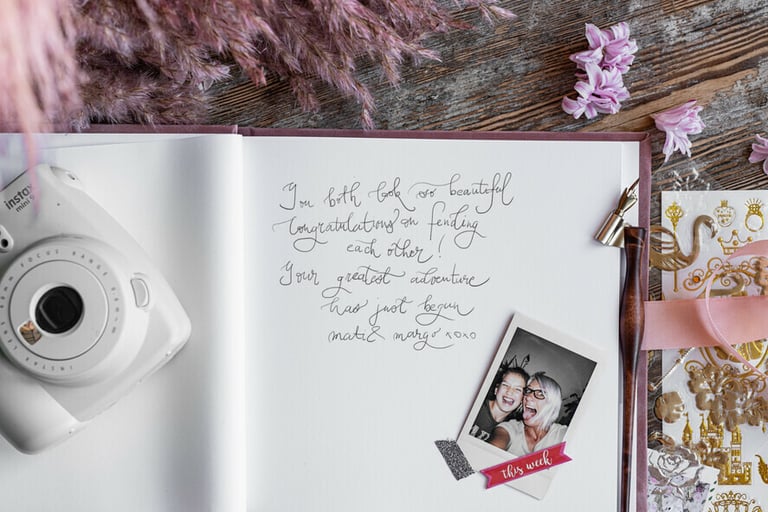 instax
mini 9
FOCUS RANGE
You both look soo beautiful
Congratulations on finding
each other!
Your greatest adventure
has just begun
mati & margo xoxo
this week